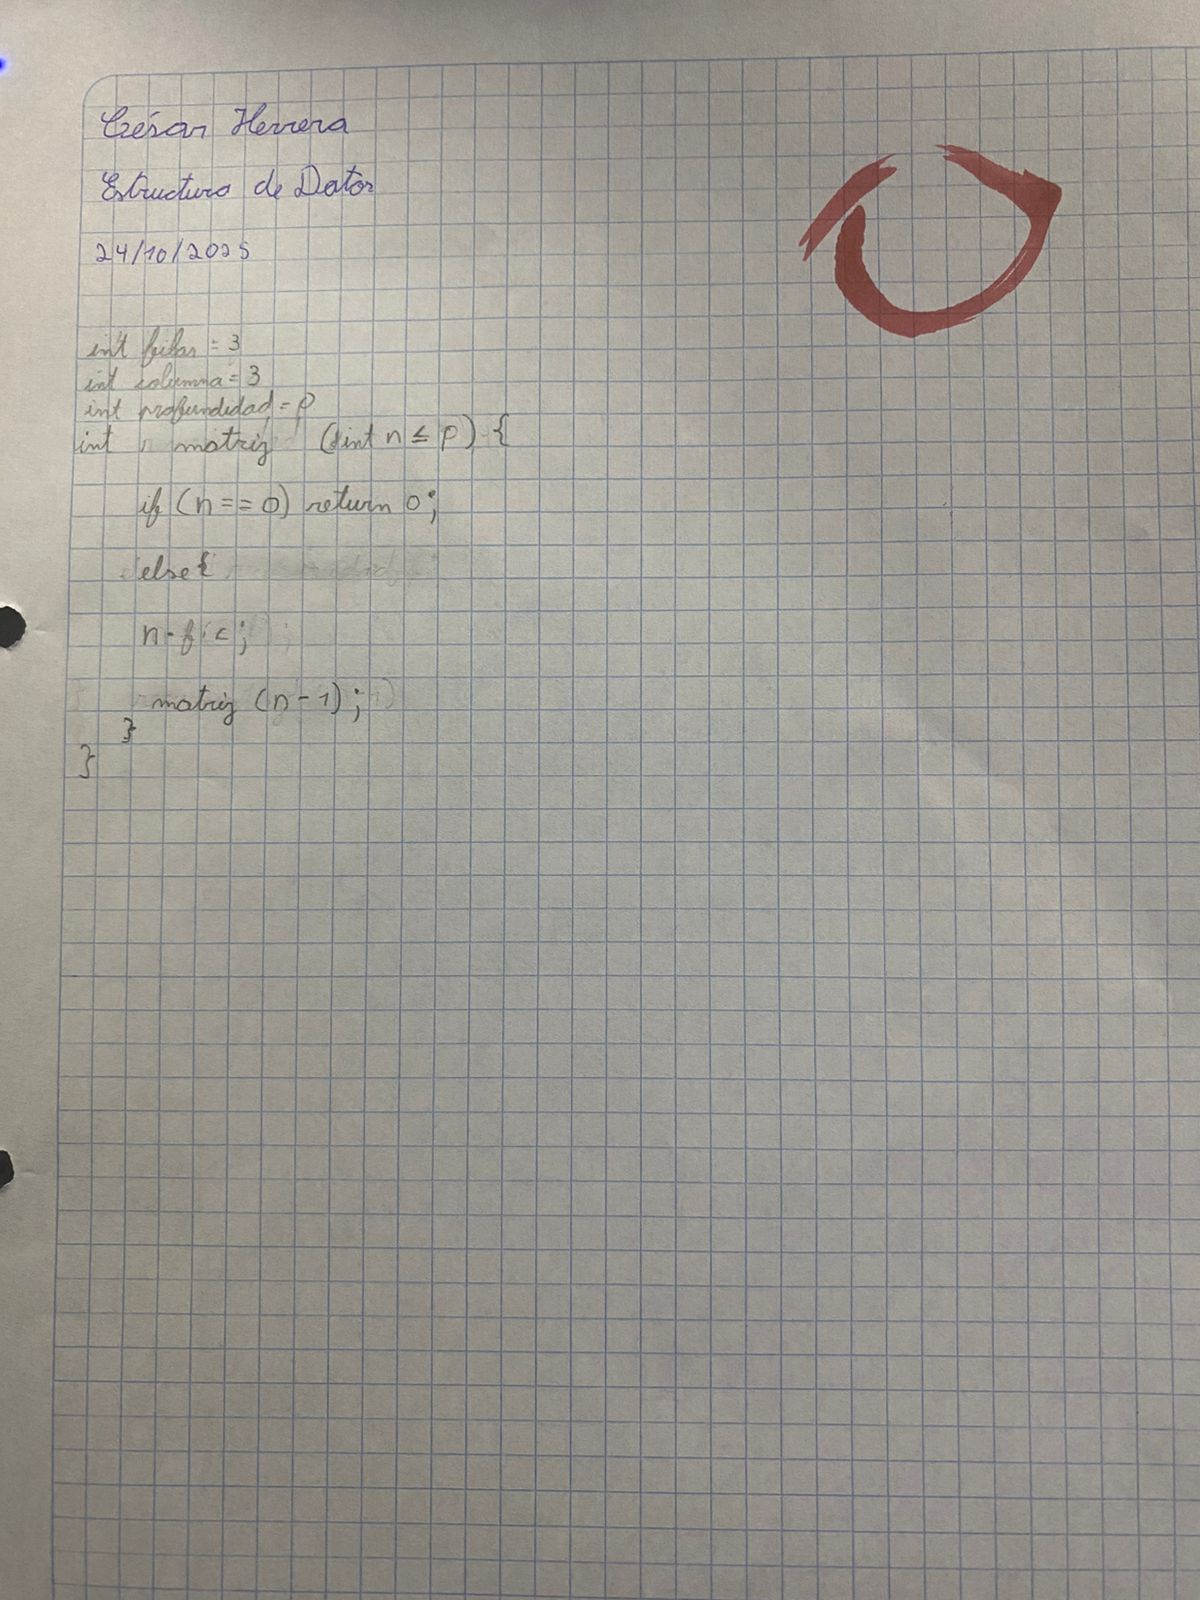 César Herrera
Estructura de Datos
24/10/2025
int filas = 3
int columna = 3
int profundidad = p
int matriz (int n ≤ p) {
if (n == 0) return 0;
else {
n-f·c;
matriz (n-1);
}
}